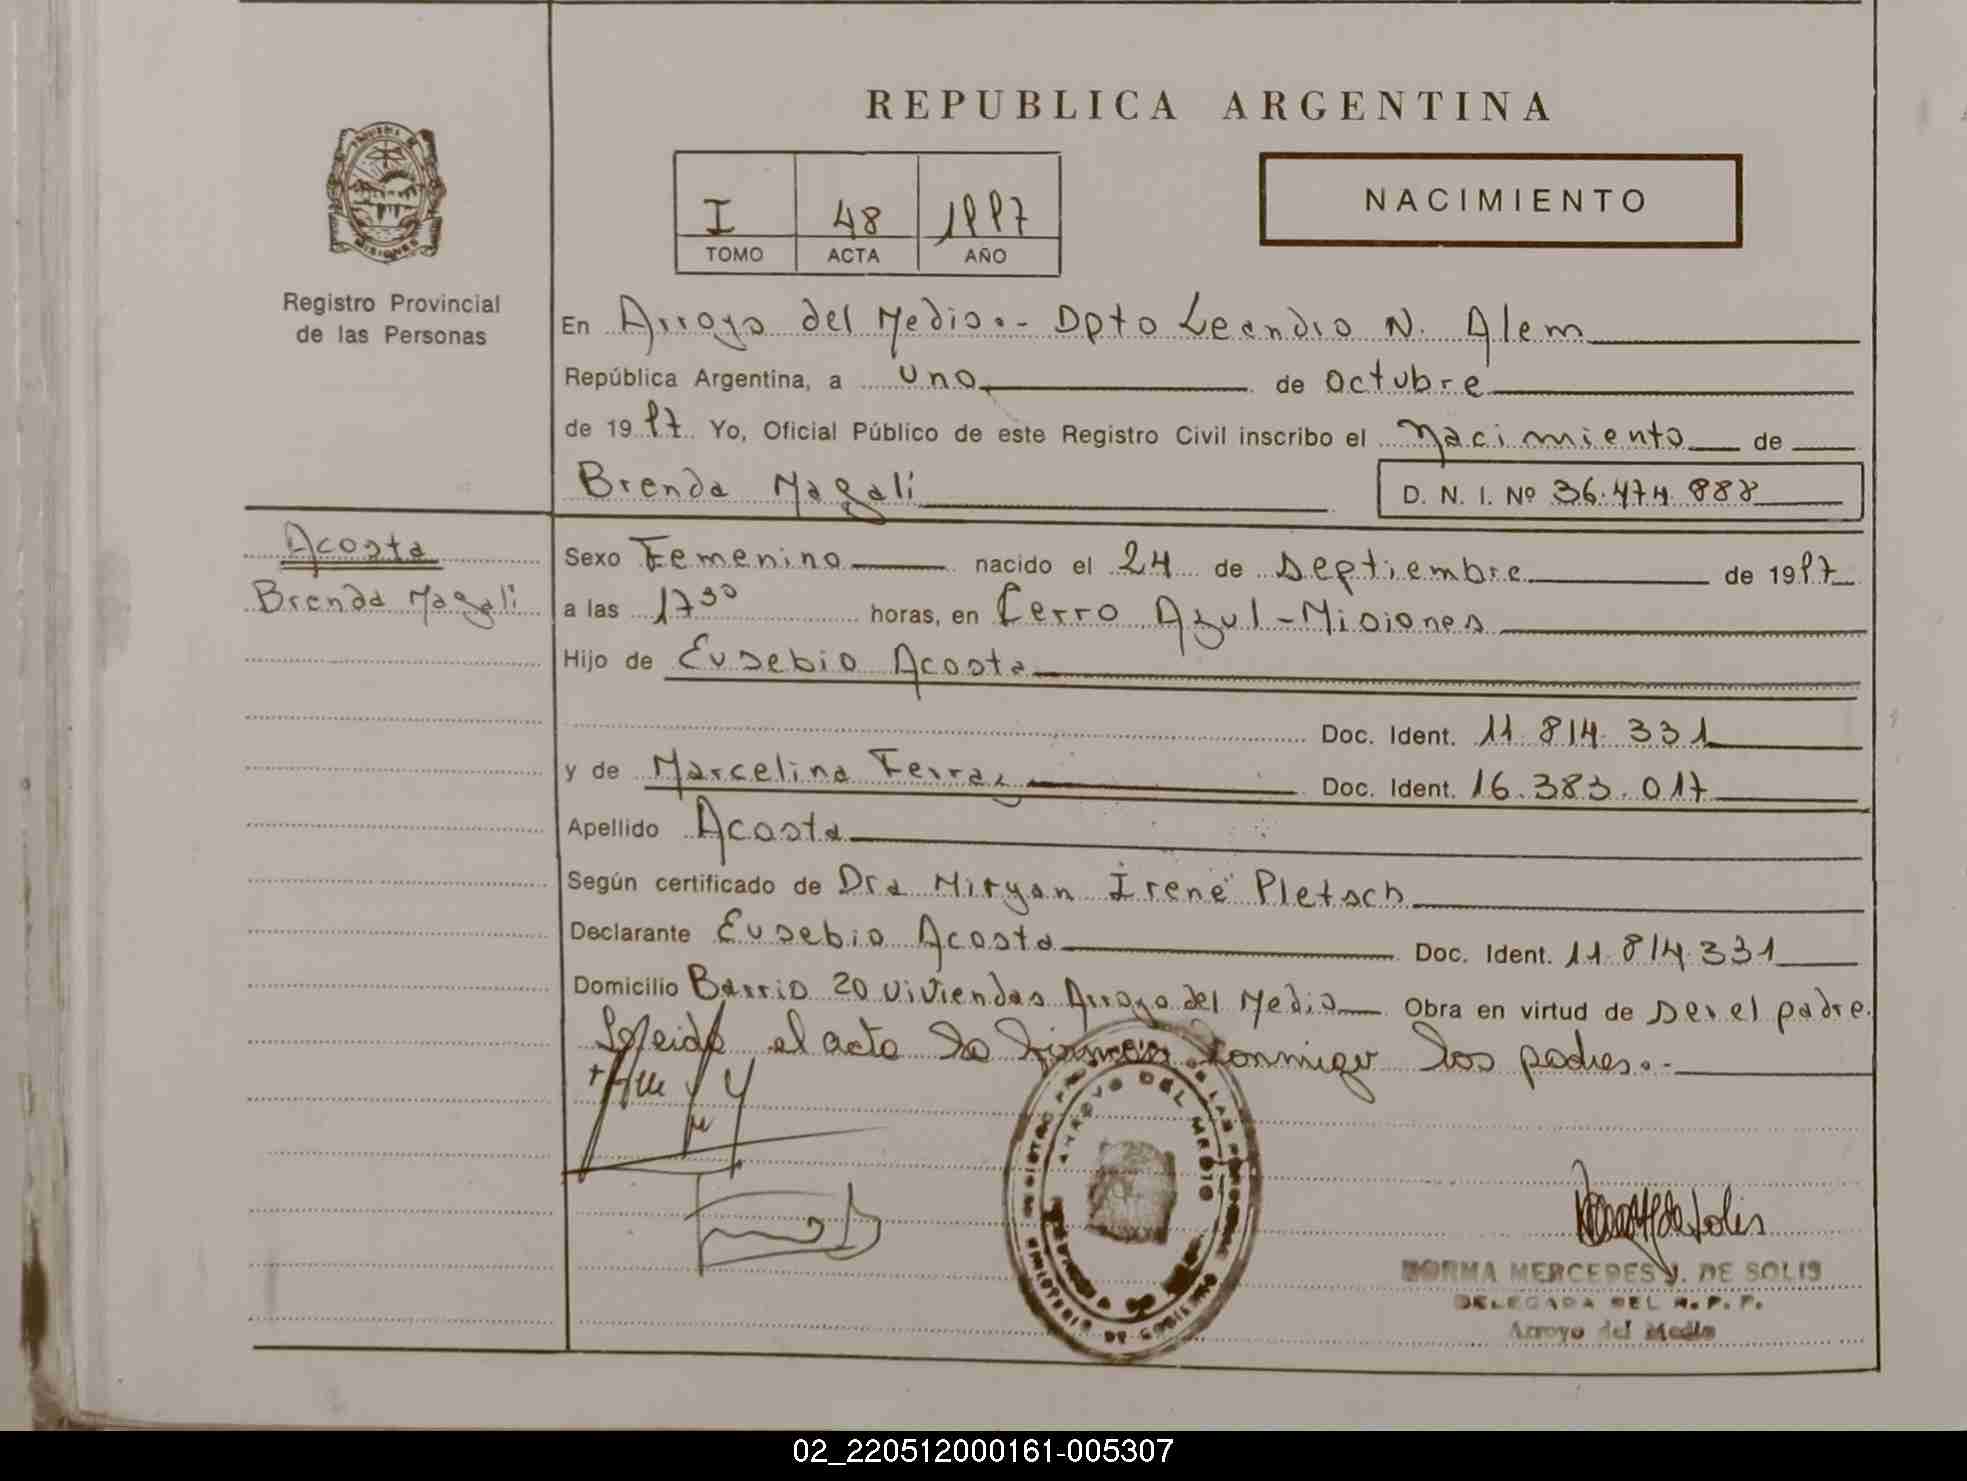 REPUBLICA ARGENTINA
NACIMIENTO
I 48 1997
TOMO ACTA AÑO
MISIONES
Registro Provincial
de las Personas
En Arroyo del Medio.- Dpto Leandro N. Alem
República Argentina, a uno de octubre
de 1997 Yo, Oficial Público de este Registro Civil inscribo el Nacimiento de
Brenda Magali
D. N. I. Nº 36.474.888
Acosta
Brenda Magali
Sexo Femenino nacido el 24 de Septiembre de 1997
a las 17 30 horas, en Cerro Azul - Misiones
Hijo de Eusebio Acosta
Doc. Ident. 11.814.331
y de Marcelina Ferraz Doc. Ident. 16.383.017
Apellido Acosta
Según certificado de Dra Miryan Irene Pletsch
Declarante Eusebio Acosta Doc. Ident. 11.814.331
Domicilio Barrio 20 viviendas Arroyo del Medio Obra en virtud de ser el padre.
Leida el acta la firman conmigo los padres.-
ARROYO DEL MEDIO
MINISTERIO DE GOBIERNO
NORMA MERCEDES J. DE SOLIS
DELEGADA DEL R. P. P.
Arroyo del Medio
02_220512000161-005307